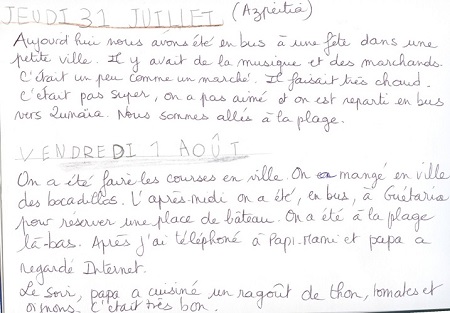 JEUDI 31 JUILLET (Azpeitia)
Aujourd'hui nous avons été en bus à une fête dans une
petite ville. Il y avait de la musique et des marchands.
C'était un peu comme un marché. Il faisait très chaud.
c'était pas super, on a pas aimé et on est reparti en bus
vers Zumaïa. Nous sommes allés à la plage.
VENDREDI 1 AOÛT
On a été faire les courses en ville. On a mangé en ville
des bocadillos. L'après-midi on a été, en bus, à Guétaria
pour réserver une place de bâteau. On a été à la plage
là-bas. Après j'ai téléphoné à Papi.Mami et papa a
regardé Internet.
Le soir, papa a cuisiné un ragoût de thon, tomates et
oignons. C'était très bon.